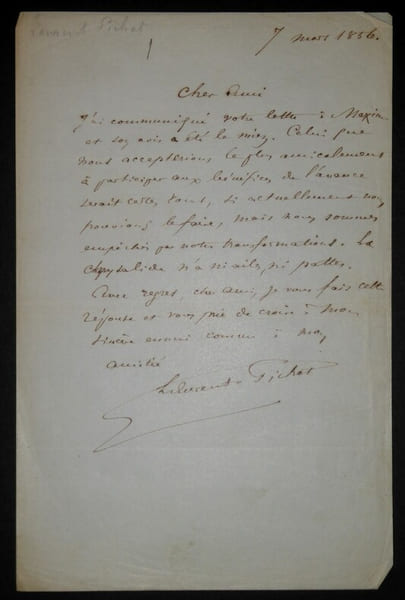 Laurent Pichat
7 mars 1856.
Cher Ami
J'ai communiqué votre lettre à Maxime
et son avis a été le mien. Celui que
nous accepterions le plus amicalement
à participer aux bénéfices de l'avance
serait certes vous, si actuellement nous
pouvions le faire, mais nous sommes
empêchés par notre transformation. La
chrysalide n'a ni ailes, ni pattes.
Avec regret, cher ami, je vous fais cette
réponse et vous prie de croire à mon
sincère ennui comme à mon
amitié
Laurent Pichat